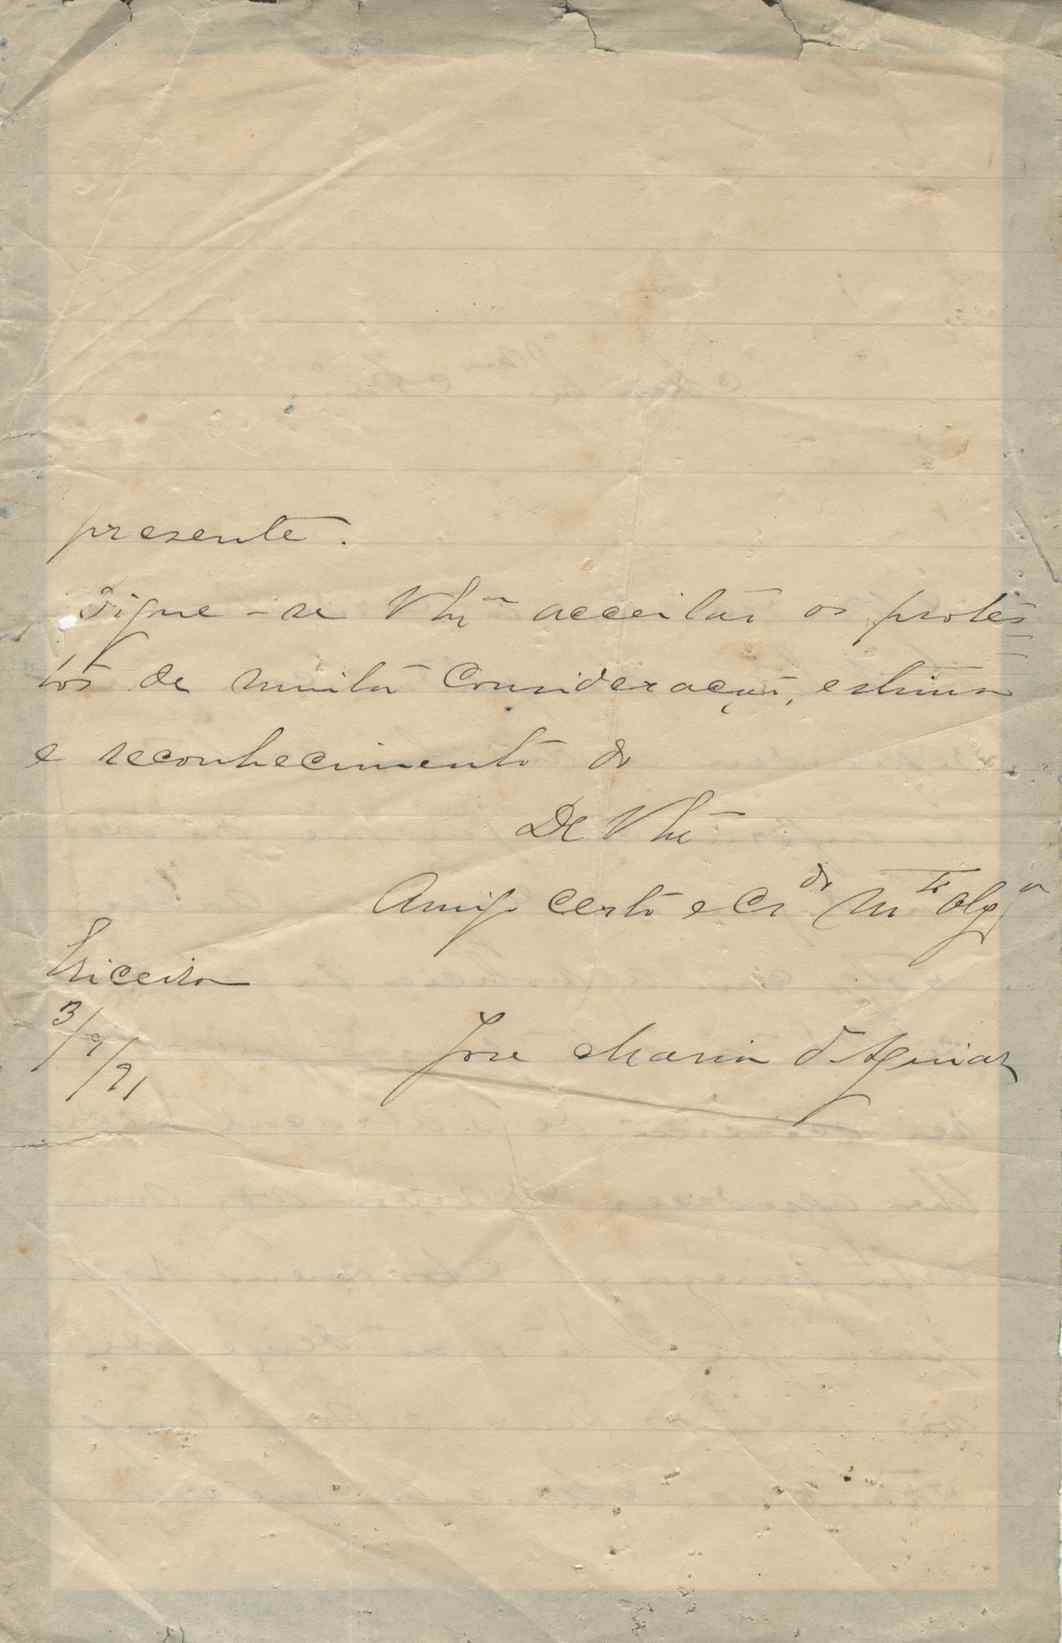 presente.
Digne-se V Exª acceitar os protes
tos de muita Consideração, estima
e reconhecimento do
De V Exª
Amigo certo e Crdo Mto Obgo
Ericeira
3/9/91
José Maria d'Aguiar